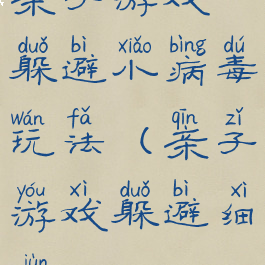 亲子游戏
duǒ bì xiǎo bìng dú
躲避小病毒
wán fǎ qīn zǐ
玩法（亲子
yóu xì duǒ bì xì
游戏躲避细
jūn